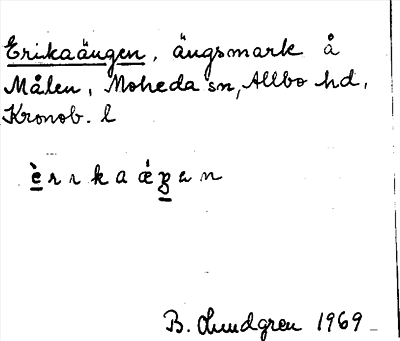 Erikaängen, ängsmark å
Målen, Moheda sn, Allbo hd,
Kronob. l
B. Lundgren 1969